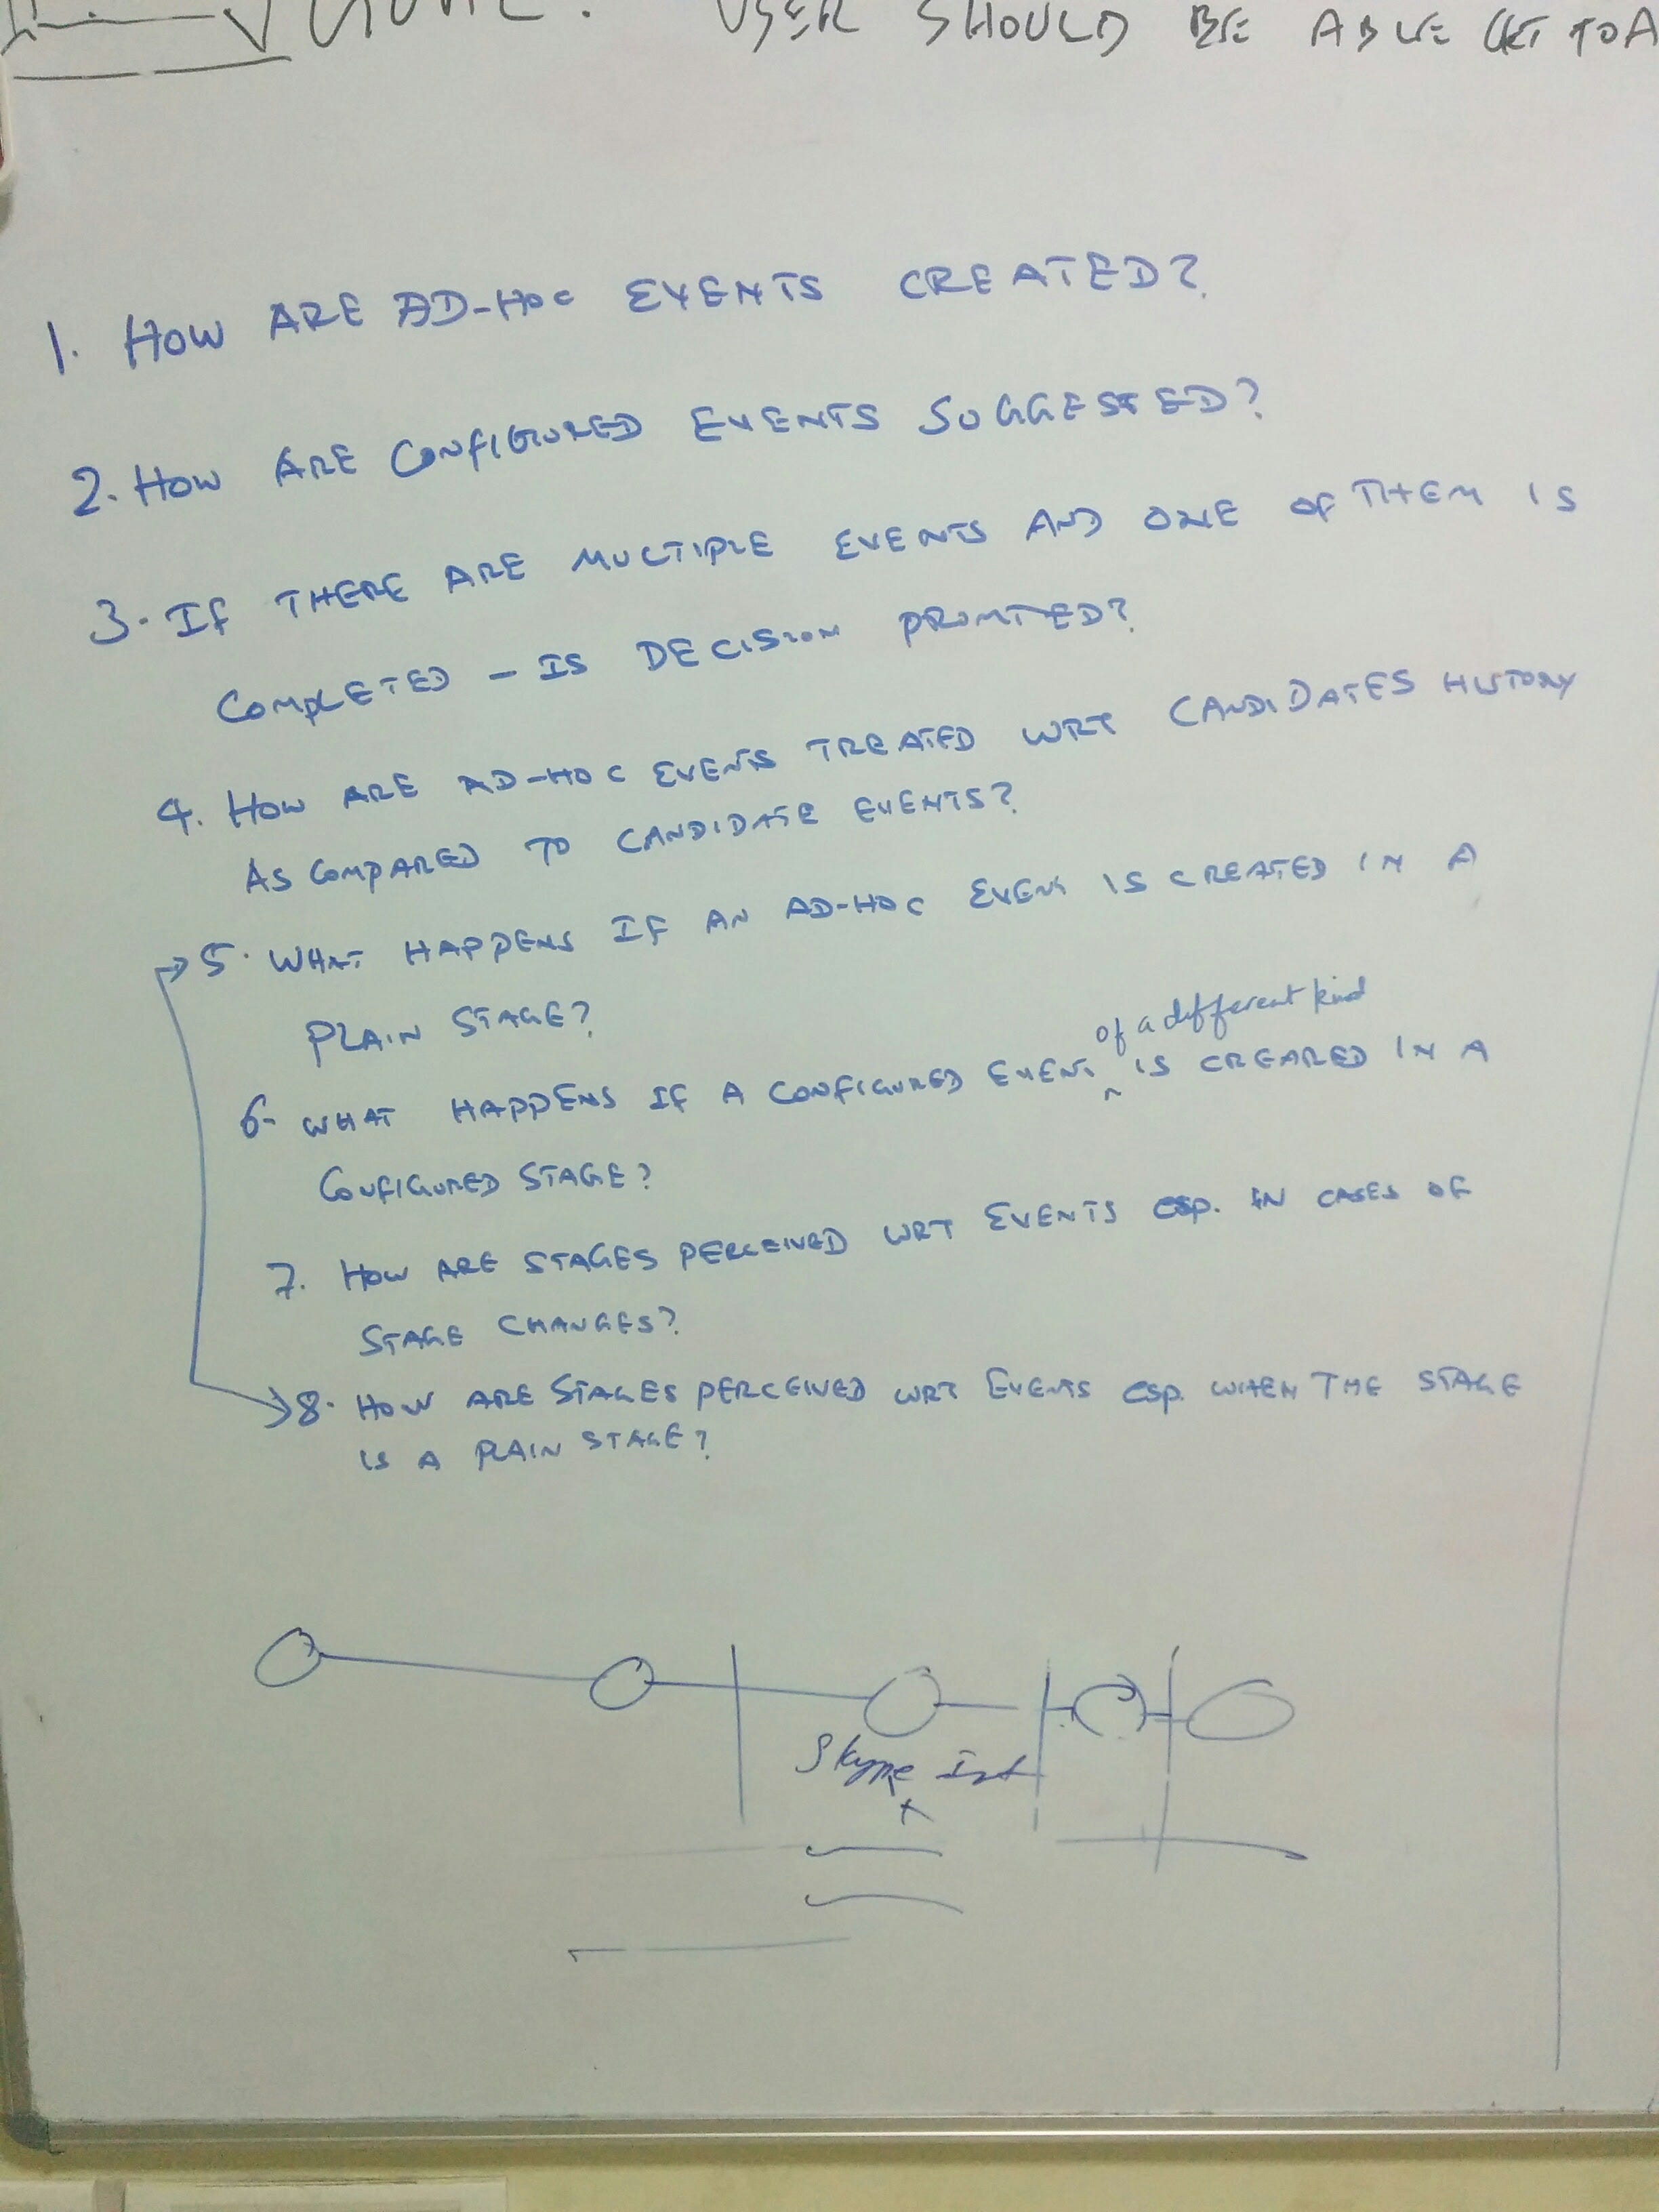 USER SHOULD BE ABLE GET TO A
1. HOW ARE AD-HOC EVENTS CREATED?
2. HOW ARE CONFIGURED EVENTS SUGGESTED?
3. IF THERE ARE MULTIPLE EVENTS AND ONE OF THEM IS
COMPLETED - IS DECISION PROMTED?
4. HOW ARE AD-HOC EVENTS TREATED WRT CANDIDATES HISTORY
AS COMPARED TO CANDIDATE EVENTS?
5. WHAT HAPPENS IF AN AD-HOC EVENT IS CREATED IN A
PLAIN STAGE?
of a different kind
6- WHAT HAPPENS IF A CONFIGURED EVENT IS CREARED IN A
CONFIGURED STAGE?
7. HOW ARE STAGES PERCEIVED WRT EVENTS esp. IN CASES OF
STAGE CHANGES?
8. HOW ARE STAGES PERCEIVED WRT EVENTS esp. WHEN THE STAGE
IS A PLAIN STAGE?
Skype Int